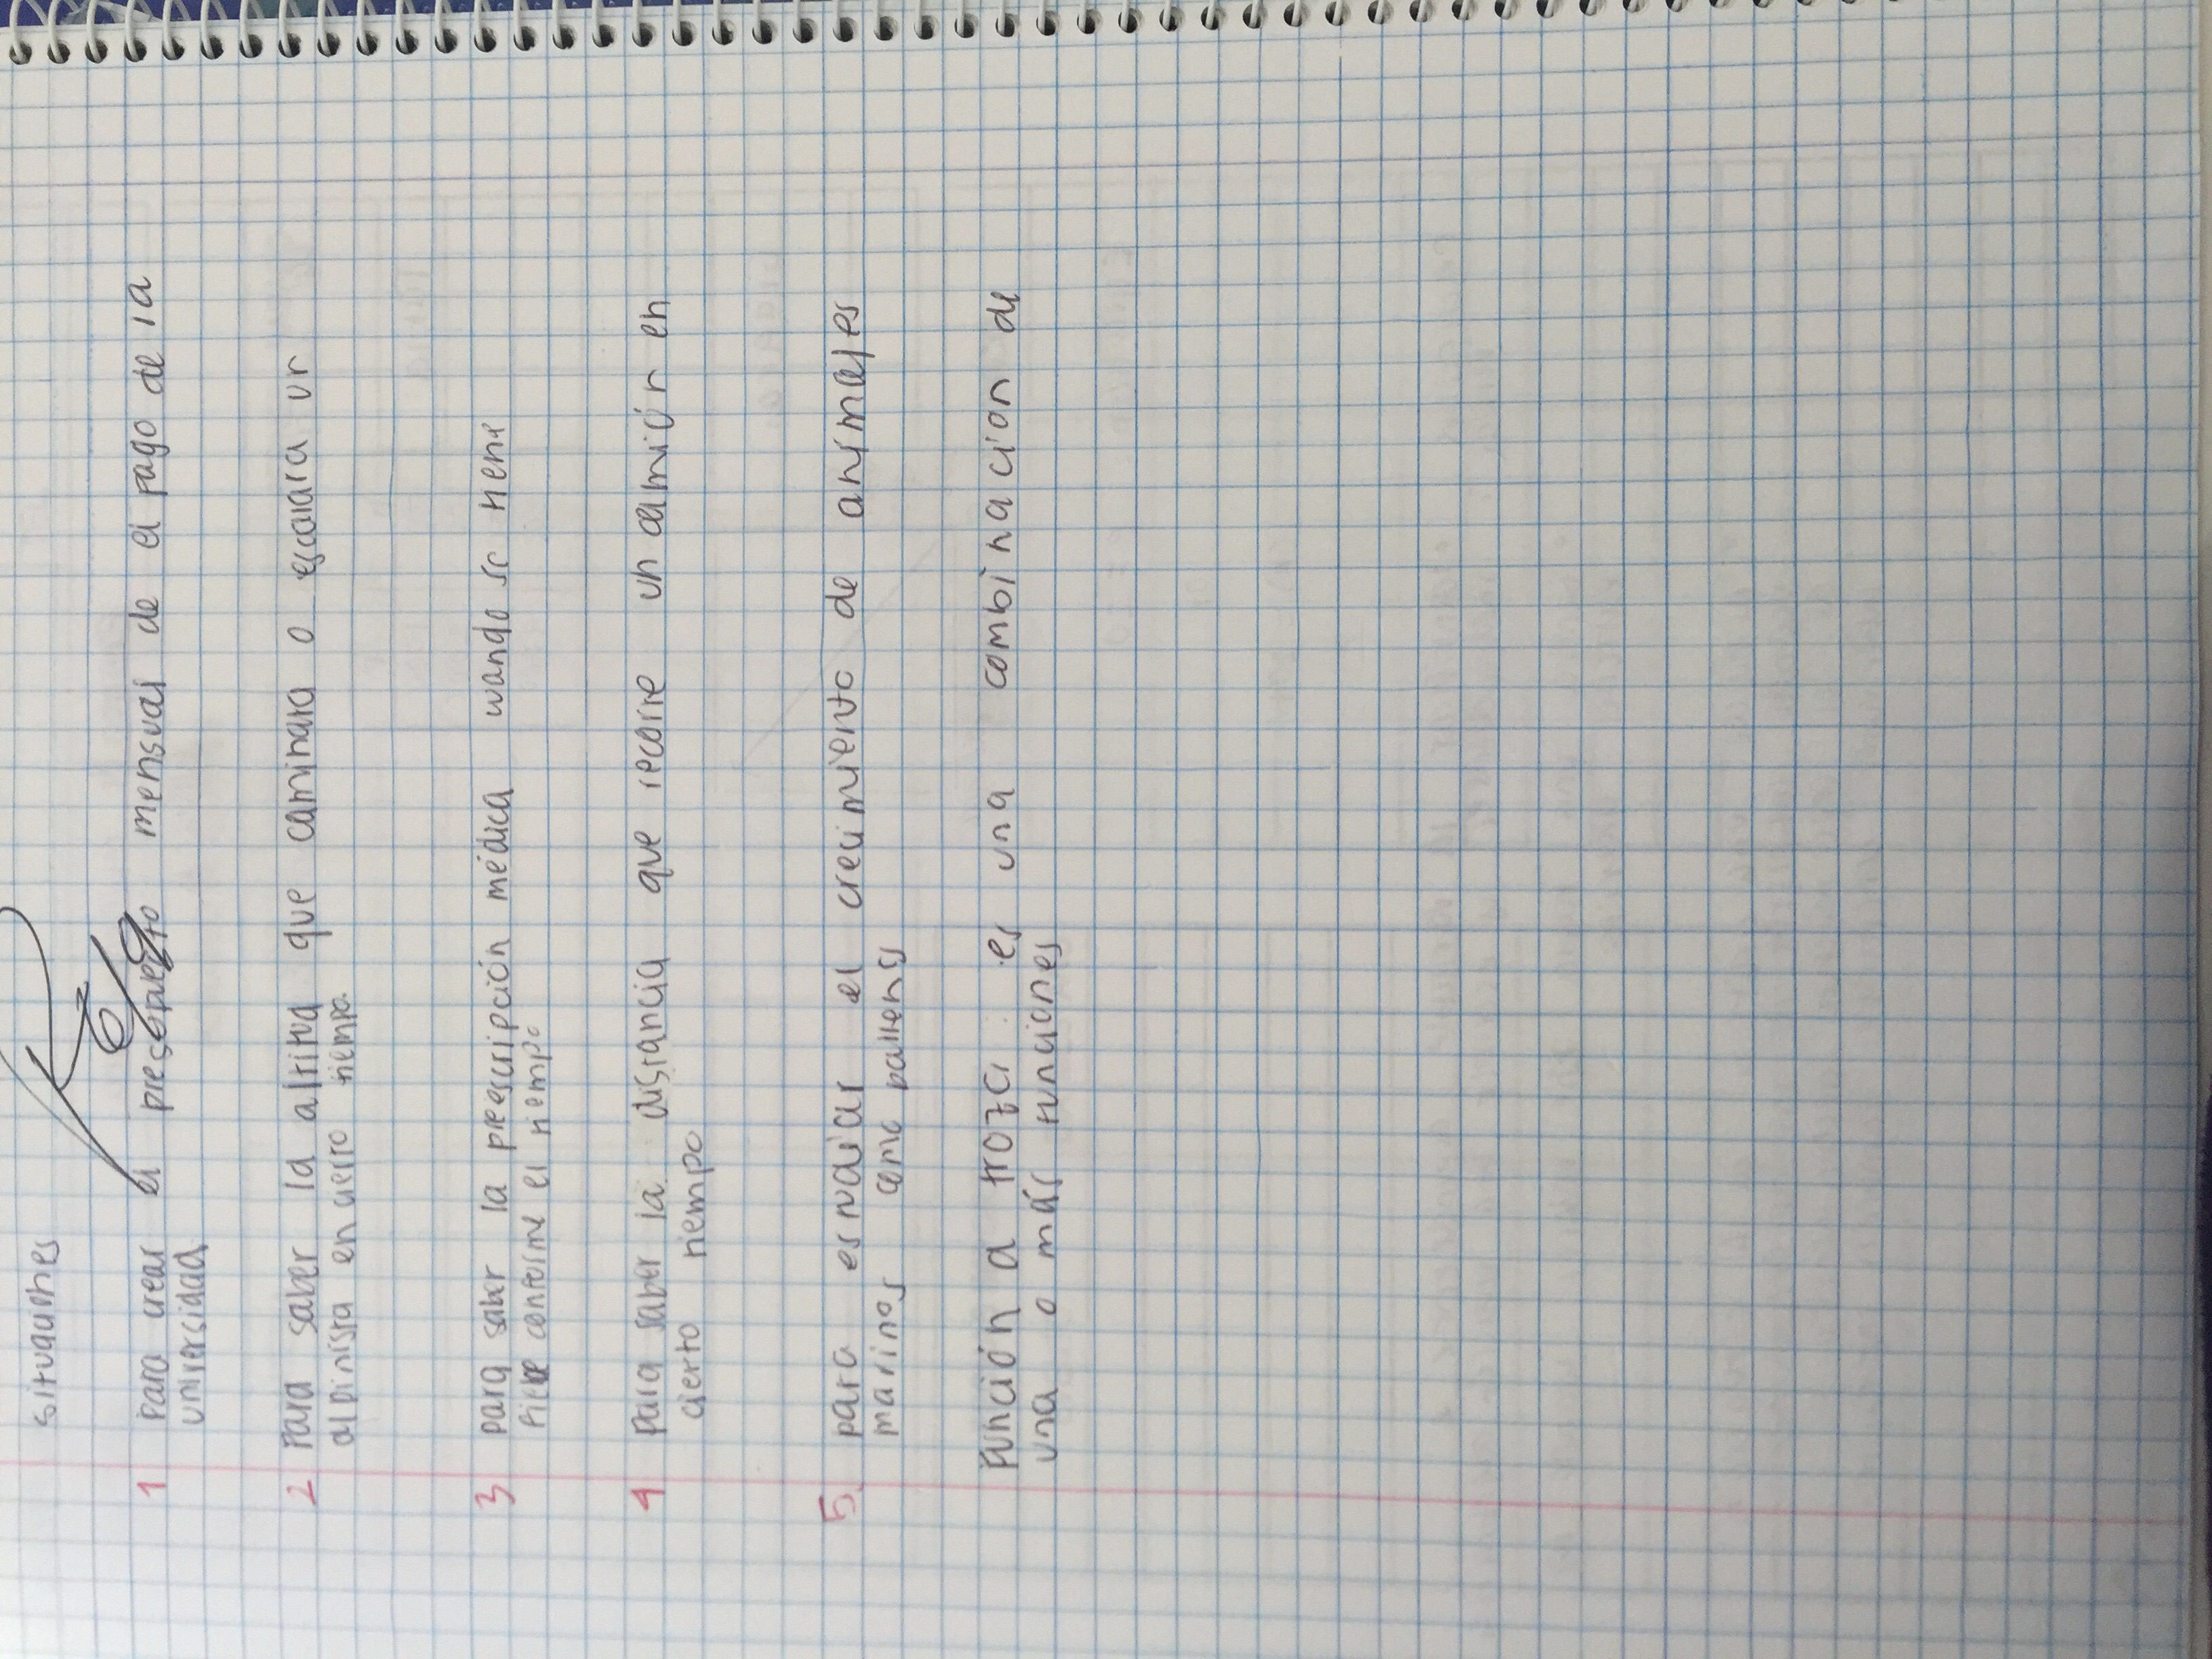 situaciones
1 Para crear el presupuesto mensual de el pago de la
universidad
2 Para saber la altitud que caminara o escalara un
alpinista en cierto tiempo.
3 para saber la prescripción médica cuando se tiene
fiebre conforme el tiempo
4 Para saber la distancia que recorre un camión en
cierto tiempo
5. para estudiar el crecimiento de animales
marinos como ballenas
Función a trozo: es una combinacion de
una o más funciones